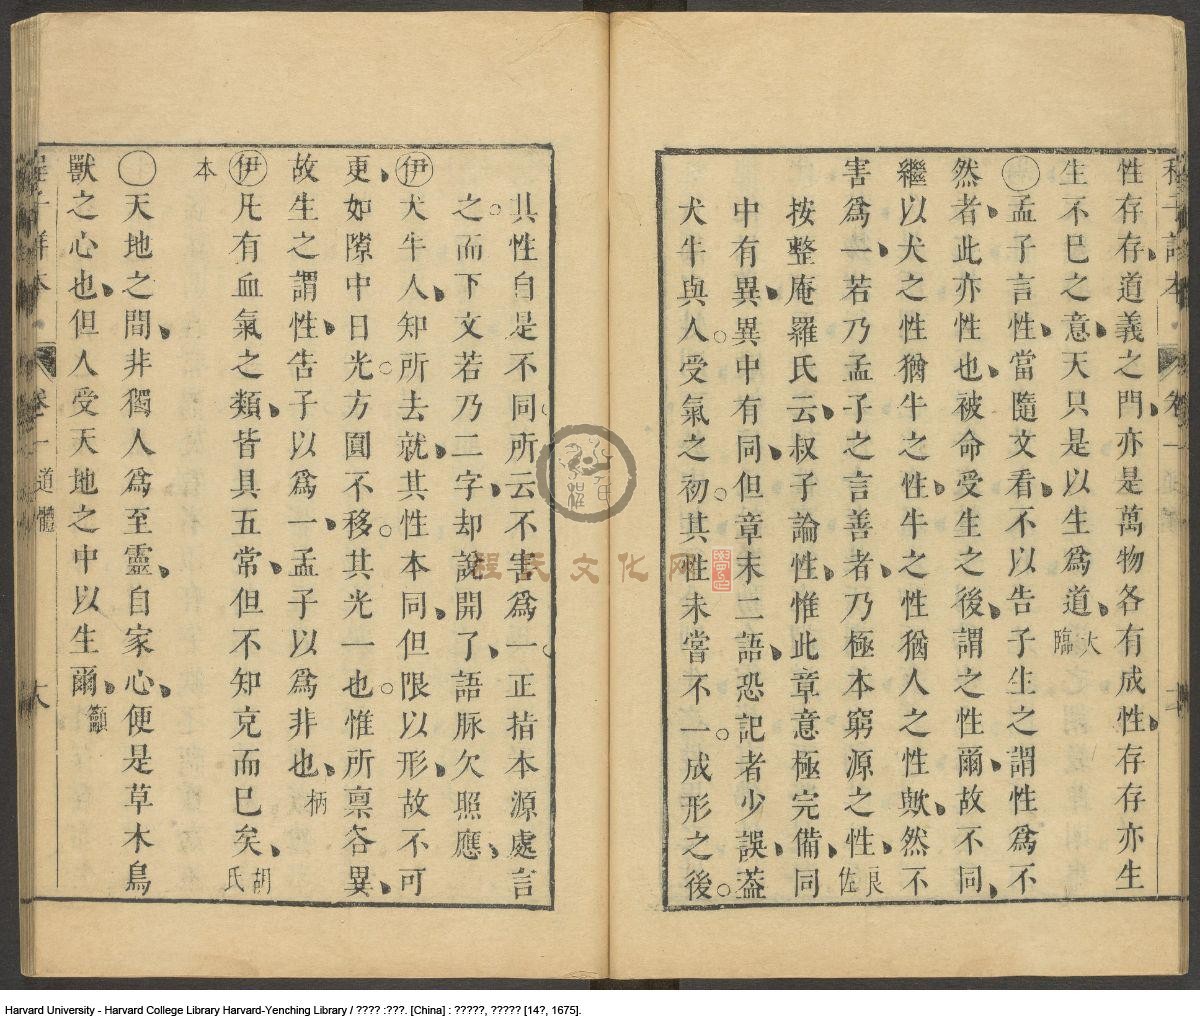 性存存道義之門亦是萬物各有成性存存亦生
生不已之意天只是以生爲道大臨
孟子言性當隨文看不以告子生之謂性爲不
然者此亦性也被命受生之後謂之性爾故不同
繼以犬之性猶牛之性牛之性猶人之性歟然不
害爲一若乃孟子之言善者乃極本窮源之性良佐
按整庵羅氏云叔子論性惟此章意極完備同
中有異異中有同但章末二語恐記者少誤葢
犬牛與人受氣之初其性未嘗不一成形之後
其性自是不同所云不害爲一正指本源處言
之而下文若乃二字却說開了語脉欠照應
伊犬牛人知所去就其性本同但限以形故不可
更如隙中日光方圓不移其光一也惟所禀各異
故生之謂性告子以爲一孟子以爲非也柄
伊凡有血氣之類皆具五常但不知克而已矣胡氏
本
天地之間非獨人爲至靈自家心便是草木鳥
獸之心也但人受天地之中以生爾籲
卷一 道體
程氏文化网
Harvard University - Harvard College Library Harvard-Yenching Library / ???? :???. [China] : ?????, ????? [14?, 1675].